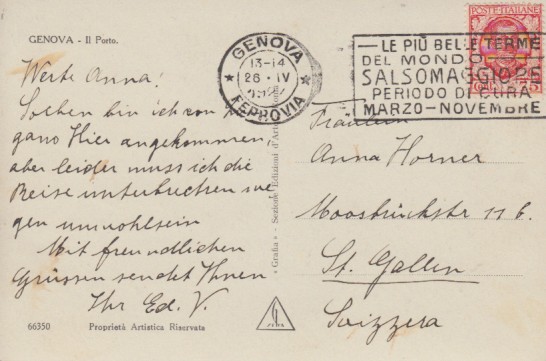 GENOVA - Il Porto.
Werte Anna!
Soeben bin ich von
gano Hier angekommen,
aber leider muss ich die
Reise unterbrechen we-
gen unwohlsein
Mit freundlichen
Grüssen sendet Ihnen
Ihr Ed. V.
66350 Proprietà Artistica Riservata
Grafia - Sezione Edizioni d'Arte
GENOVA
13-14
26·IV
FERROVIA
POSTE·ITALIANE
75
— LE PIÙ BELLE TERME
DEL MONDO
SALSOMAGGIORE
PERIODO DI CURA
MARZO-NOVEMBRE
Fräulein
Anna Horner
Moosbrückstr 11 b.
St. Gallen
Svizzera